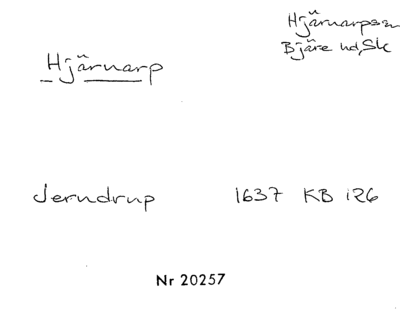 Hjärnarps sn
Bjäre hd, Sk
Hjärnarp
Jerndrup 1637 KB 126
Nr 20257